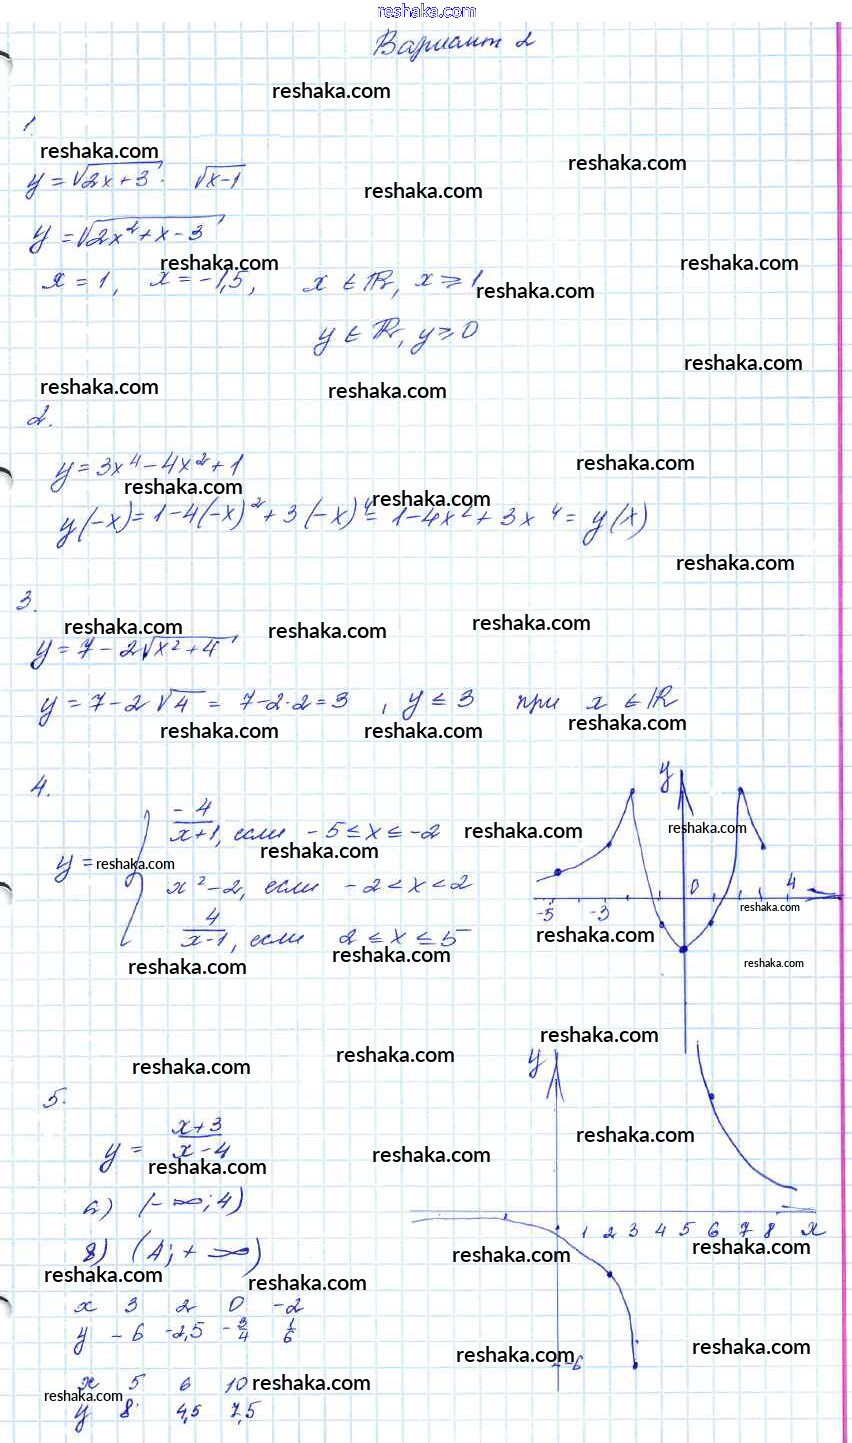 reshaka.com
Вариант 2
reshaka.com
1.
reshaka.com reshaka.com
y = √2x+3 · √x-1 reshaka.com
y = √2x²+x-3
reshaka.com reshaka.com
x = 1, x = -1,5, x ∈ R, x ≥ 1 reshaka.com
y ∈ R, y ≥ 0
reshaka.com
reshaka.com reshaka.com
2.
y = 3x⁴ - 4x² + 1 reshaka.com
reshaka.com reshaka.com
y(-x) = 1-4(-x)² + 3(-x)⁴ = 1-4x² + 3x⁴ = y(x)
reshaka.com
3.
reshaka.com reshaka.com reshaka.com
y = 7 - 2√x²+4
y = 7-2√4 = 7-2·2=3, y ≤ 3 при x ∈ R
reshaka.com reshaka.com reshaka.com
4.
y
-4/x+1, если -5 ≤ x ≤ -2 reshaka.com reshaka.com
reshaka.com
y = reshaka.com
x²-2, если -2 < x < 2
0 4
-5 -3 reshaka.com
4/x-1, если 2 ≤ x ≤ 5 reshaka.com
reshaka.com reshaka.com reshaka.com
reshaka.com
reshaka.com reshaka.com y
5.
y = x+3/x-4 reshaka.com
reshaka.com reshaka.com
а) (-∞; 4)
1 2 3 4 5 6 7 8 x
в) (4; +∞) reshaka.com reshaka.com
reshaka.com reshaka.com
x 3 2 0 -2
y -6 -2,5 -3/4 1/6
reshaka.com -6 reshaka.com
x 5 6 10 reshaka.com
reshaka.com
y 8 4,5 7,5